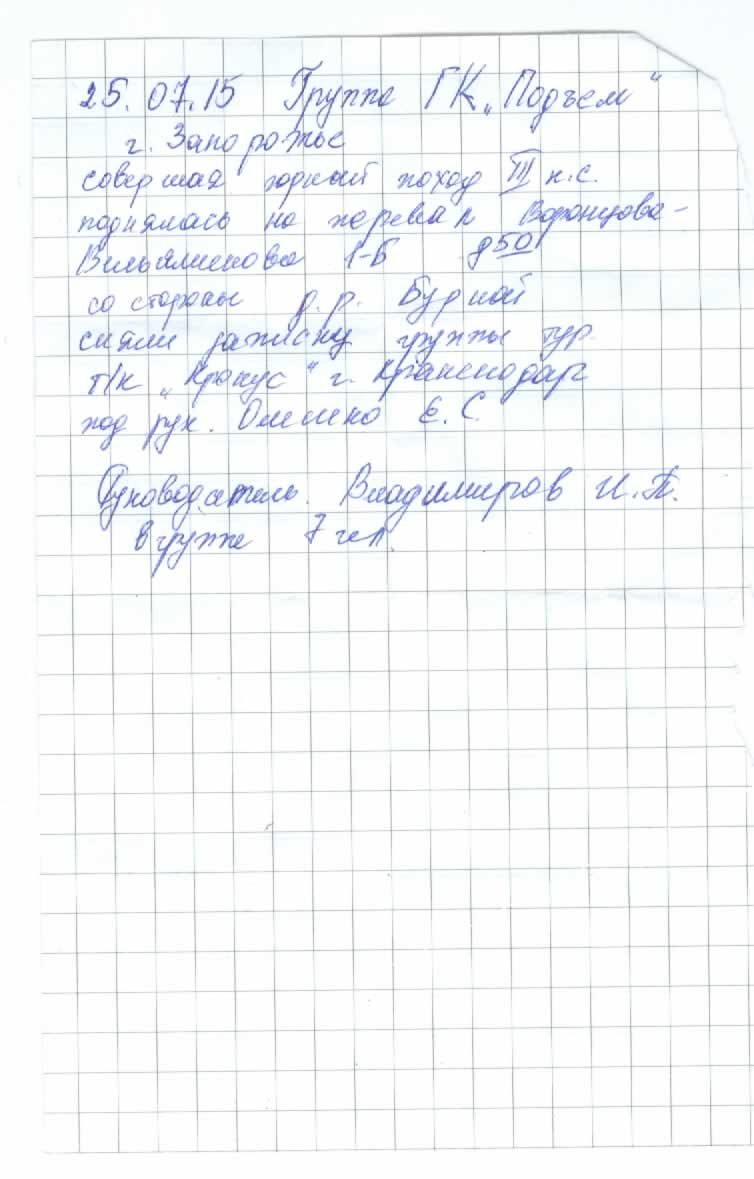 25.07.15 Группа ГК „Подъем“
г. Запорожье
совершая горный поход III к.с.
поднялась на перевал Воронцова-
Вельяминова 1-Б 8 50
со стороны д.р. Бурной
сняли записку группы тур.
т/к „Крокус“ г. Краснодар
под рук. Е.С.
Руководитель. Владимиров И.П.
в группе 7 чел.